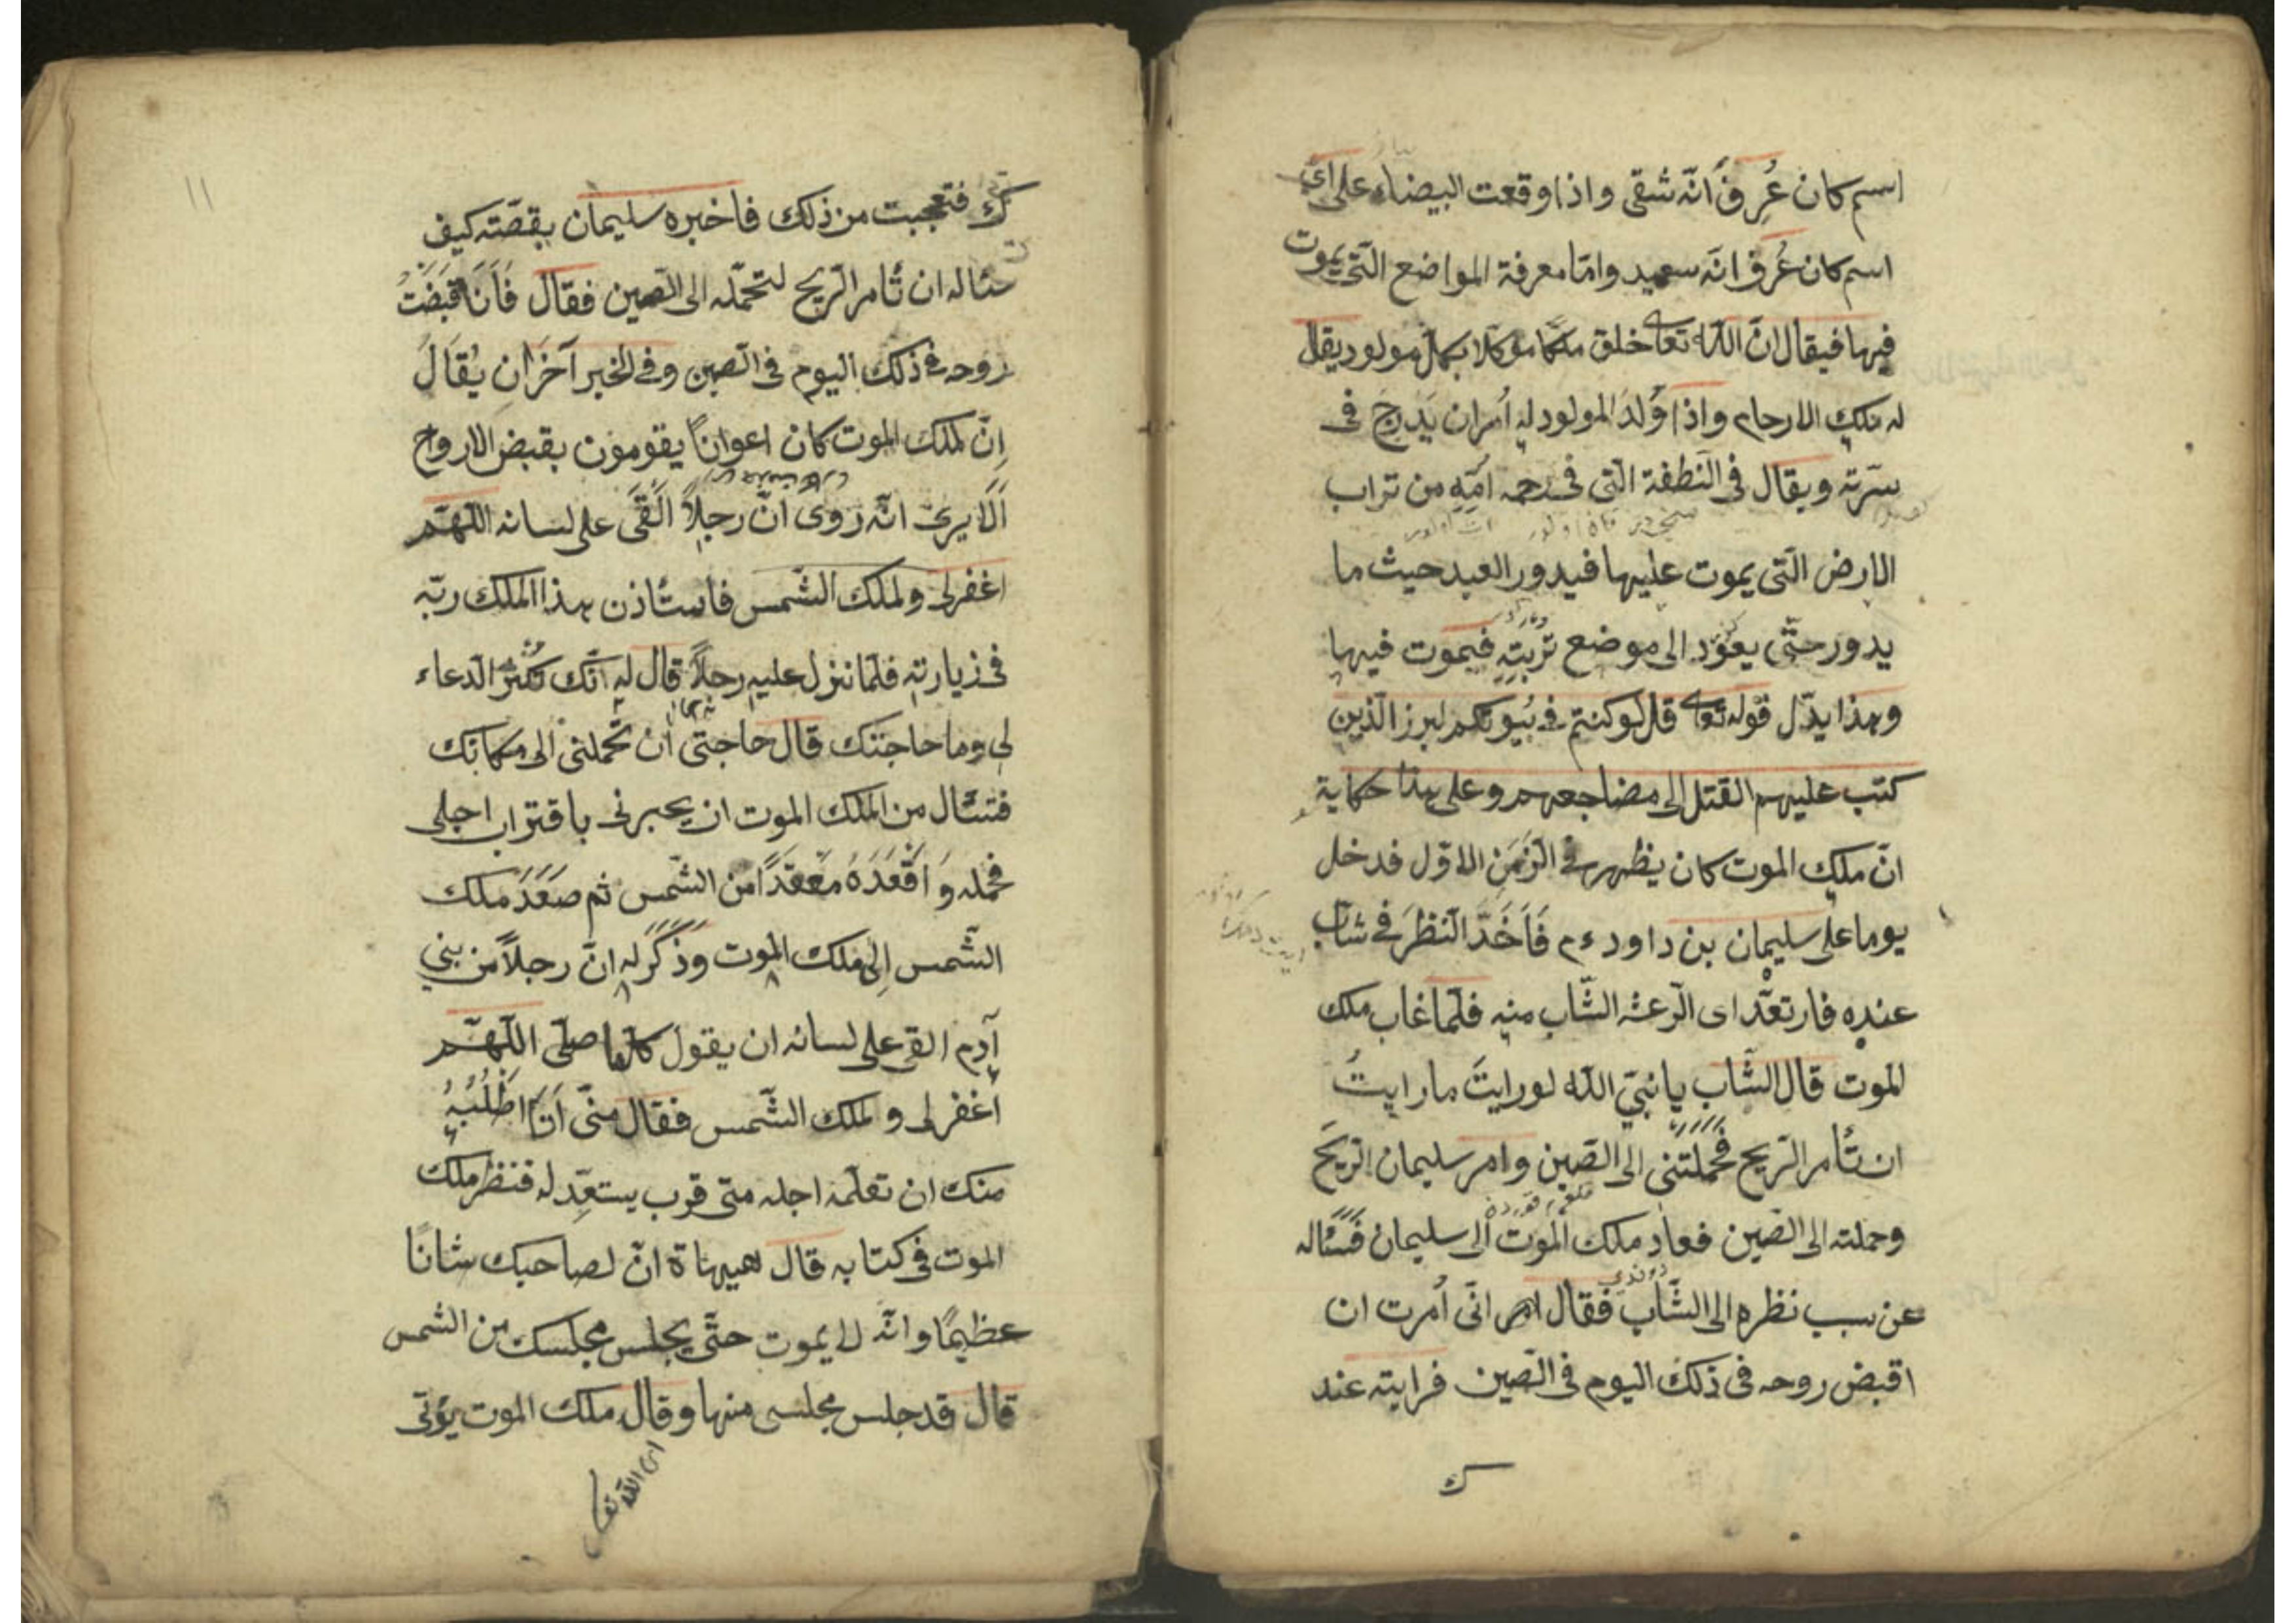 اسم كان عُرِفَ انّه شقى واذا وقعت البيضاء على اىّ
اسم كان عُرِفَ انّه سعيد وامّا معرفة المواضع الّتى يموت
فيها فيقال انّ اللّٰه تعالى خلق ملكا موكلا بكل مولود يقال
له ملك الارحام واذا وُلدَ المولود له اُمران يَدرج فى
سرّته ويقال فى النّطفة الّتى فى رحم اُمّه من تراب
الارض الّتى يموت عليها فيدور العبد حيث ما
يدور حتّى يعوّد الى موضع تُربتِه فيموت فيها
وبهذا يدّل قوله تعالى قل لو كنتم فى بُيوتكم لبرز الّذين
كتب عليهم القتل الى مضاجعهم وعلى هذا حكاية
انّ ملك الموت كان يظهر فى الزّمَن الاوّل فدخل
يوما على سليمان بن داود ءم فَاَخَدَّ النّظَرَ فى شابّ
عنده فارتعّد اى الرّعشه الشّاب منه فلمّا غاب ملك
الموت قال الشّاب يا نبىّ اللّه لو رايتَ ما رايتُ
ان تأمر الرّيح فَحَمَلَتنى الى الصّين وامر سليمان الرّيحَ
وحملته الى الصّين فعاد ملك الموت الى سليمان فَسَئَاله
عن سبب نظره الى الشّاب فقال انّى اُمرت ان
اقبض روحه فى ذلك اليوم فى الصّين فرايته عند
ك
١١
ك فتعجبت من ذلك فاخبره سليمان بقصّته كيف
سئاله ان تأمر الرّيح لتحمّله الى الصّين فقال فَاَنَا قَبَضْتُ
روحه فى ذلك اليوم فى الصّين وفى الخبر آخَرَان يُقَالَ
اِنّ لملك الموت كان اعوانًا يقومون بقبض الارواح
اَلَا يرىَ انّه رَوى انّ رجلاً اَلْقَى على لسانه اللّهمّ
اغفرلى ولملك الشّمس فاستأذن هذا الملك ربّه
فى زيارته فلمّا نزل عليه رجلاً قال له انّك تُكْثِرُ الدّعاء
لى وما حاجتك قال حاجتى ان تحملنى الى مكانك
فتسئال من الملك الموت ان يخبرنى باقتراب اجلى
فحمله وَ اَقْعَدَهُ مَعْقَدًا من الشّمس ثم صَعَدَ ملك
الشّمس اِلى ملك الموت وذَكَرَ له انّ رجلاً من بنى
آدم القى على لسانه ان يقول كلّما صلّى اللّهمّ
اغفرلى و لملك الشّمس فقال منّى اَنَا اطْلُبُهُ
منك ان تعلّمه اجله متى قرب يستعّد له فنظر ملك
الموت فى كتابه قال هيهاة انّ لصاحبك شانًا
عظيمًا وانّه لا يموت حتّى يجلس مجلسك من الشمس
قال قد جلس مجلسى منها وقال ملك الموت يؤتى
اى اللّه تعالى